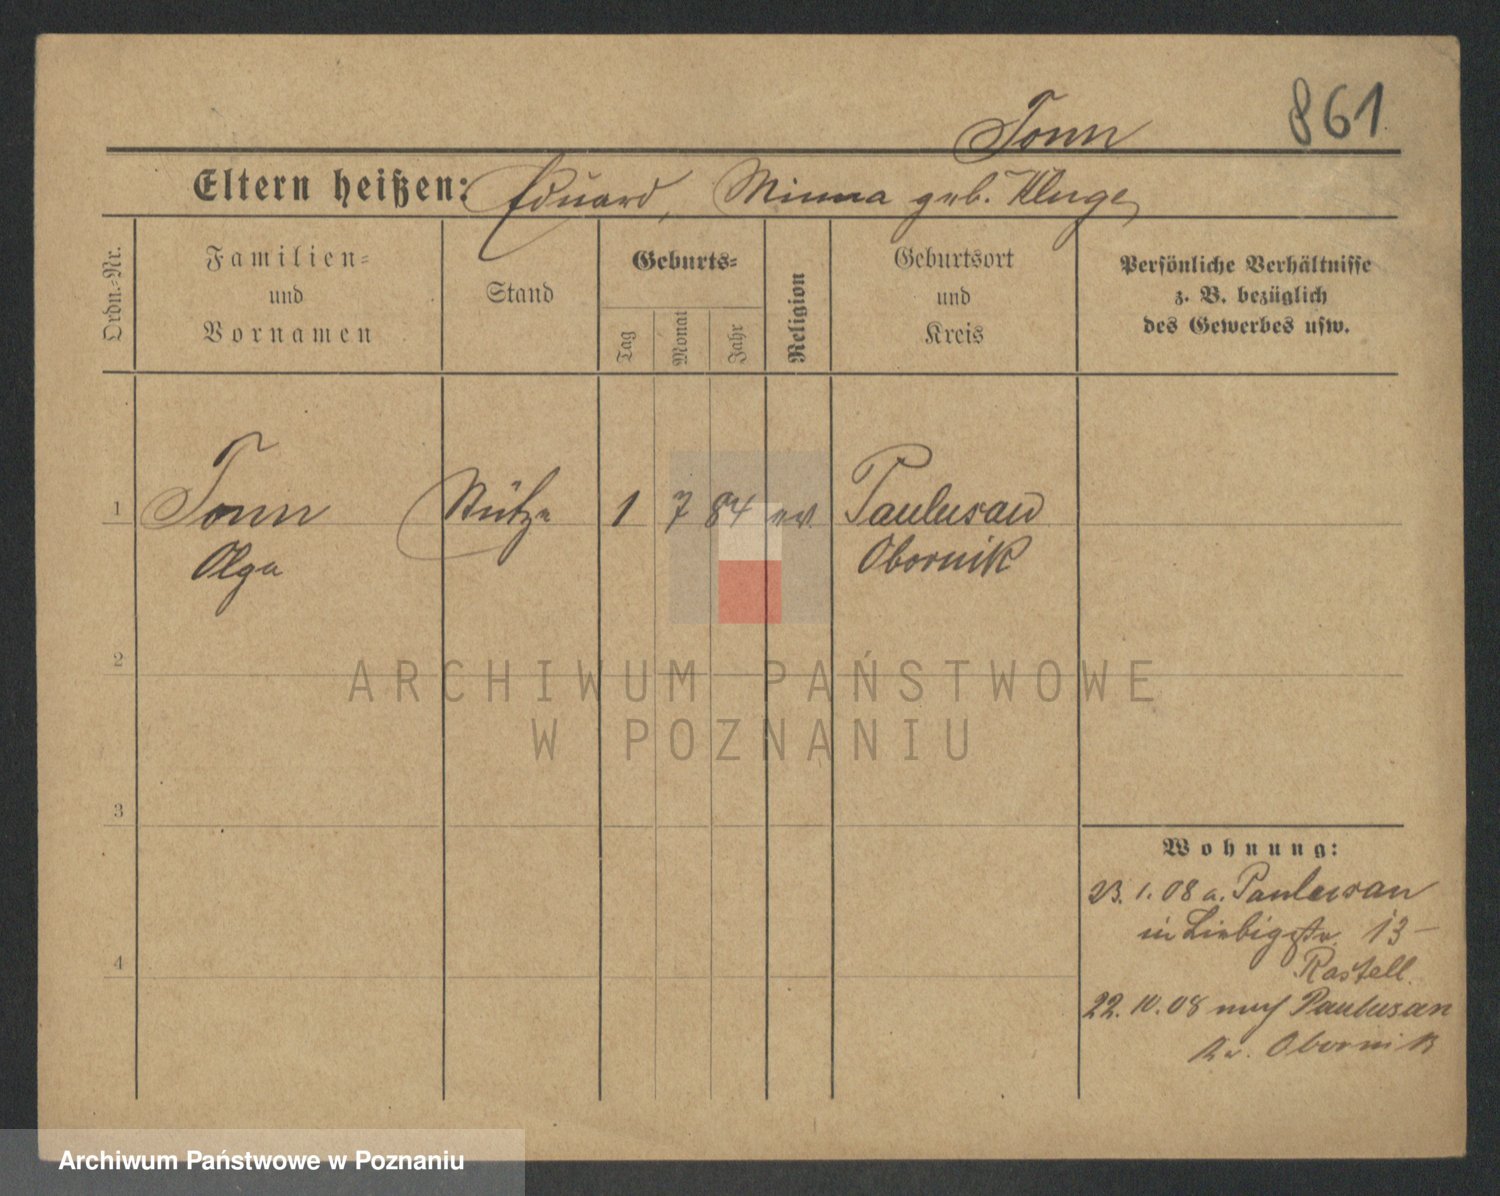 861
Tonn
Eltern heißen: Eduard, Minna geb. Kluge
Ordn.-Nr.
Familien-
und
Vornamen
Stand
Geburts-
Tag
Monat
Jahr
Religion
Geburtsort
und
Kreis
Persönliche Verhältnisse
z. B. bezüglich
des Gewerbes usw.
1 Tonn Stütze 1 7 84 ev. Paulusau
Olga Obornik
2
3
4
ARCHIWUM PAŃSTWOWE
W POZNANIU
Wohnung:
23. 1. 08 a. Paulusau
in Liebigstr. 13 -
Rastell.
22. 10. 08 nach Paulusau
Kr. Obornik
Archiwum Państwowe w Poznaniu